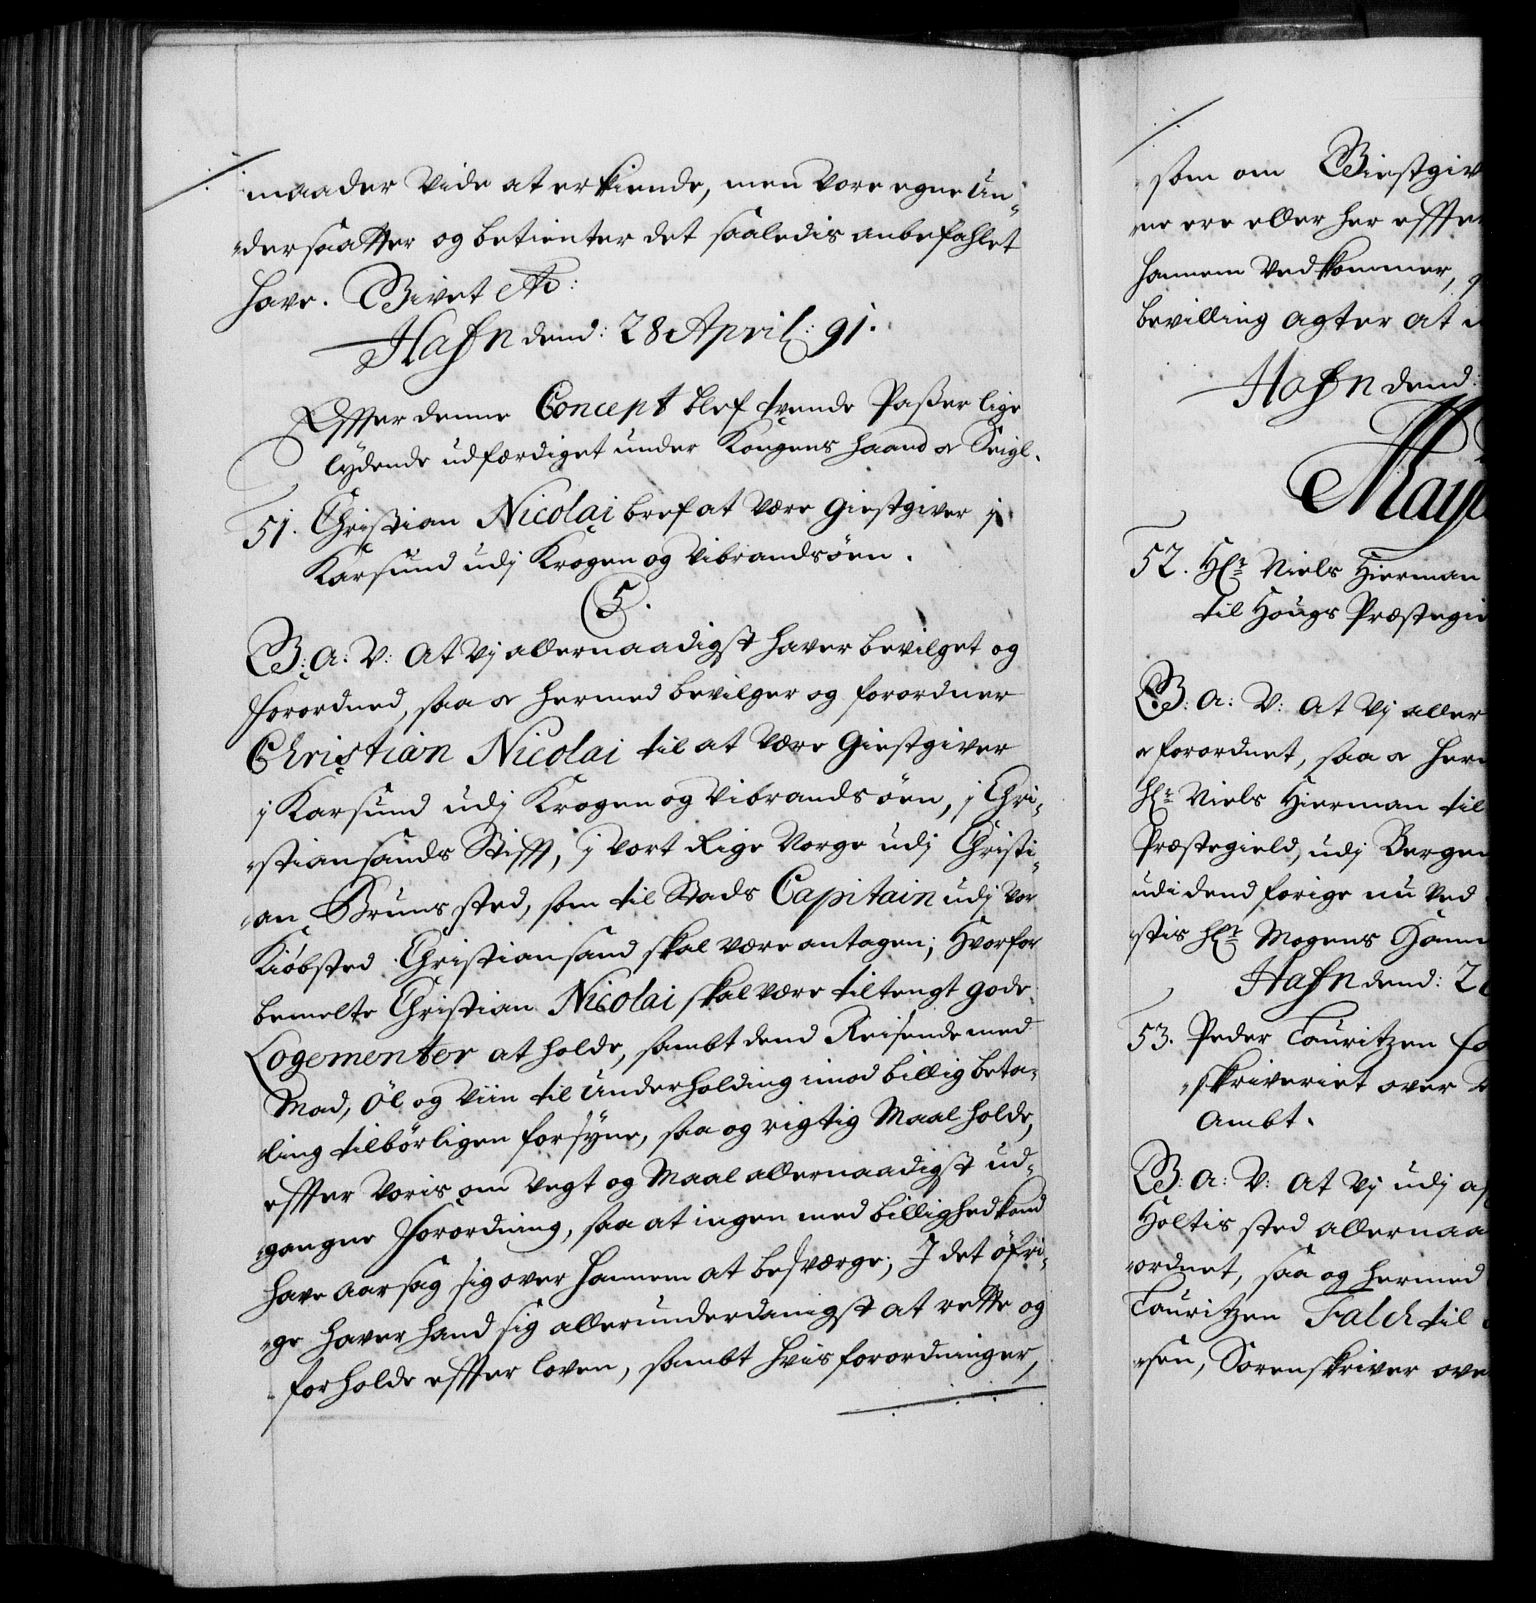 maader vide at erkiende, men vore egne Un-
dersaatter og betienter det saaledis anbefahlet
have. Givet etc:
Hafn dend: 28 April: 91.
Effter denne Concept blef tvende Passer lige
lydende udfærdiget under Kongens haand oc Seigl.
51. Christian Nicolai bref at være giestgiver j
Karsund udj Krogen og Vibrandsöen.
5.
G: A: V: At Vj allernaadigst haver bevilget og
forordned, saa oc hermed bevilger og forordner
Christian Nicolai til at være giestgiver
j Karsund udj Krogen og Vibrandsöen, j Chri-
stiansands Stifft, j vort Rige Norge udj Christi-
an Bruns sted, som til Stads Capitain udj vor
Kiöbsted Christiansand skal være antagen; Hvorfor
bemelte Christian Nicolai skal være tiltengt gode
Logementer at holde, sambt dend Reisende med
Mad, öl og Viin til Underholding imod billig beta-
ling tilbörligen forsyne, saa og rigtig Maal holde,
effter Voris om Vegt og Maal allernaadigst ud-
gangne forordning, saa at ingen med billighed kand
have aarsag sig over hannem at besværge; J det öfri-
ge haver hand sig allerunderdanigst at rette og
forholde effter loven, sambt hvis forordninger,
som om Giestgiv
ne ere eller her effter
hannem vedkommer,
bevilling agter at
Hafn dend:
May
52. Hr Niels Hierman
til Hougs Præstegi
G: A: V: At Vj aller
oc forordnet, saa oc her
Hr Niels Hierman til
Præstegield, udj Bergen
udi dend forige nu ved
stis Hr Mogens
Hafn dend: 2
53. Peder Lauritzen
skriveriet over
Ambt.
G: A: V: At Vj udj af
Holtis sted allernaa
ordnet, saa og hermed
Lauritzen Falch til
sen, Sorenskriver ove